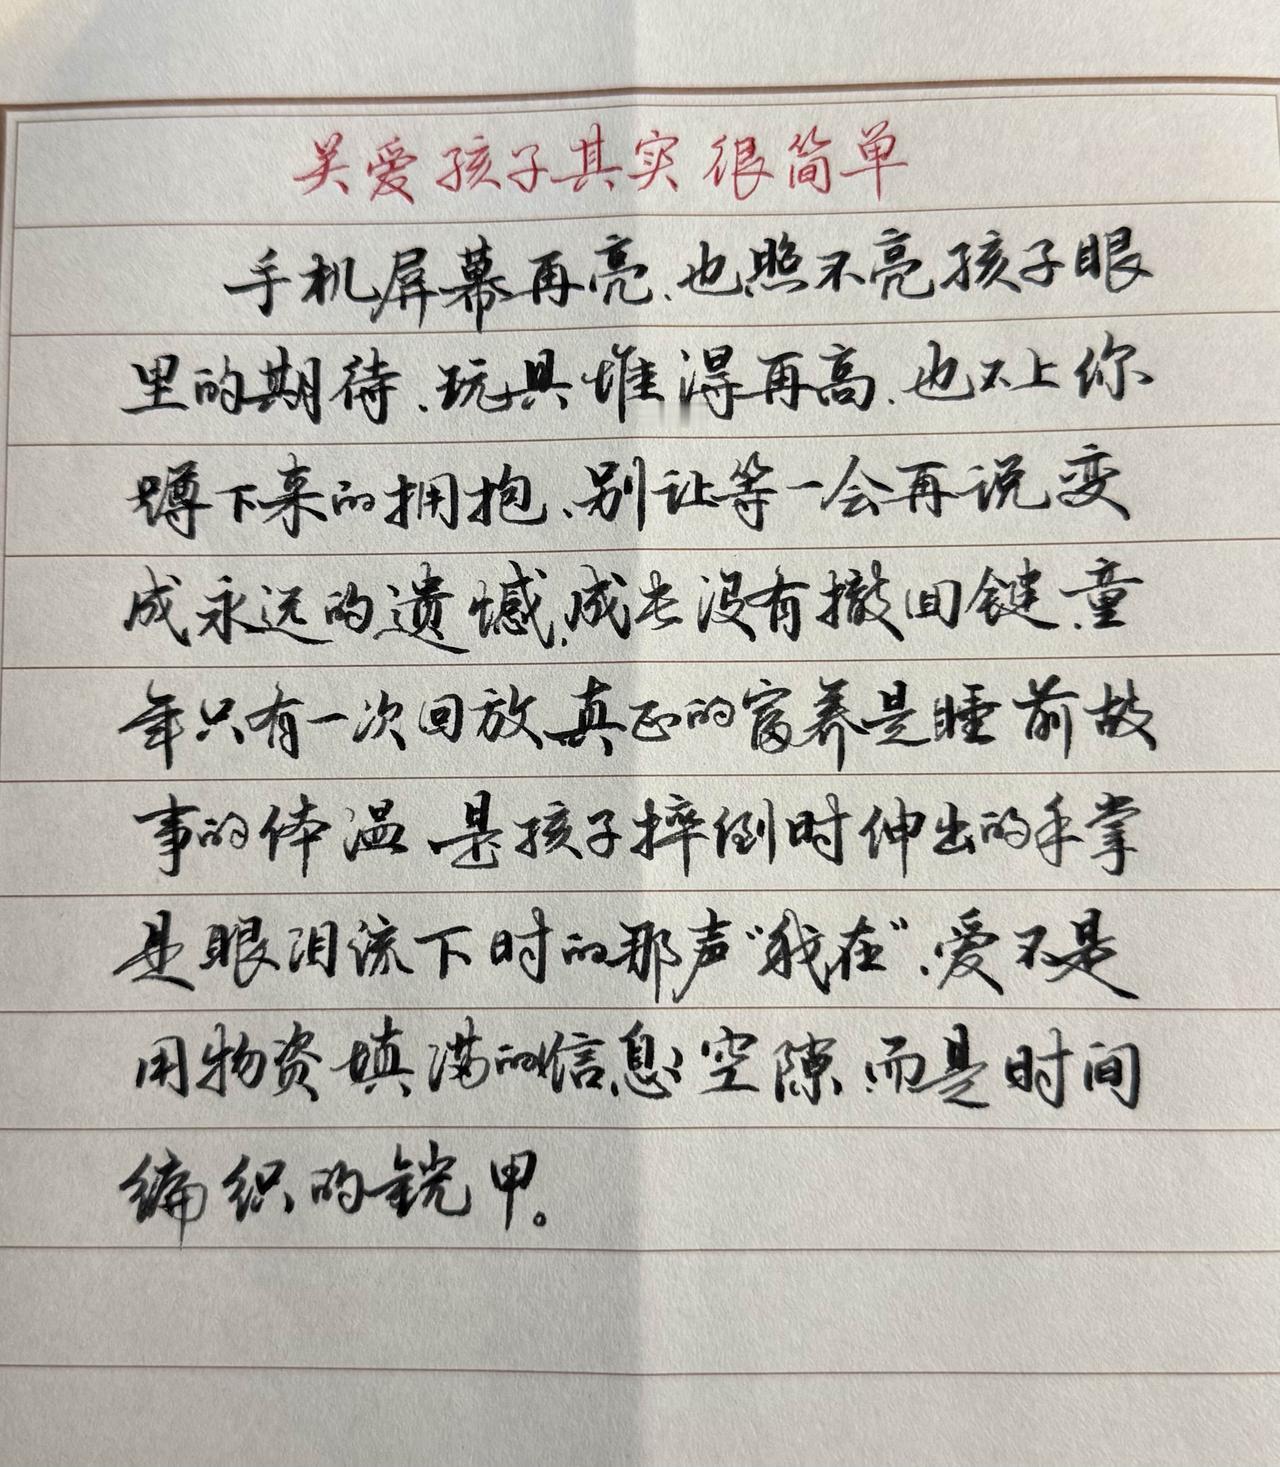 关爱孩子其实很简单
手机屏幕再亮、也照不亮孩子眼
里的期待、玩具堆得再高、也不上你
蹲下来的拥抱、别让等一会再说变
成永远的遗憾、成长没有撤回键、童
年只有一次回放、真正的富养是睡前故
事的体温、是孩子摔倒时伸出的手掌
是眼泪流下时的那声“我在”、爱不是
用物资填满的信息空隙、而是时间
编织的铠甲。